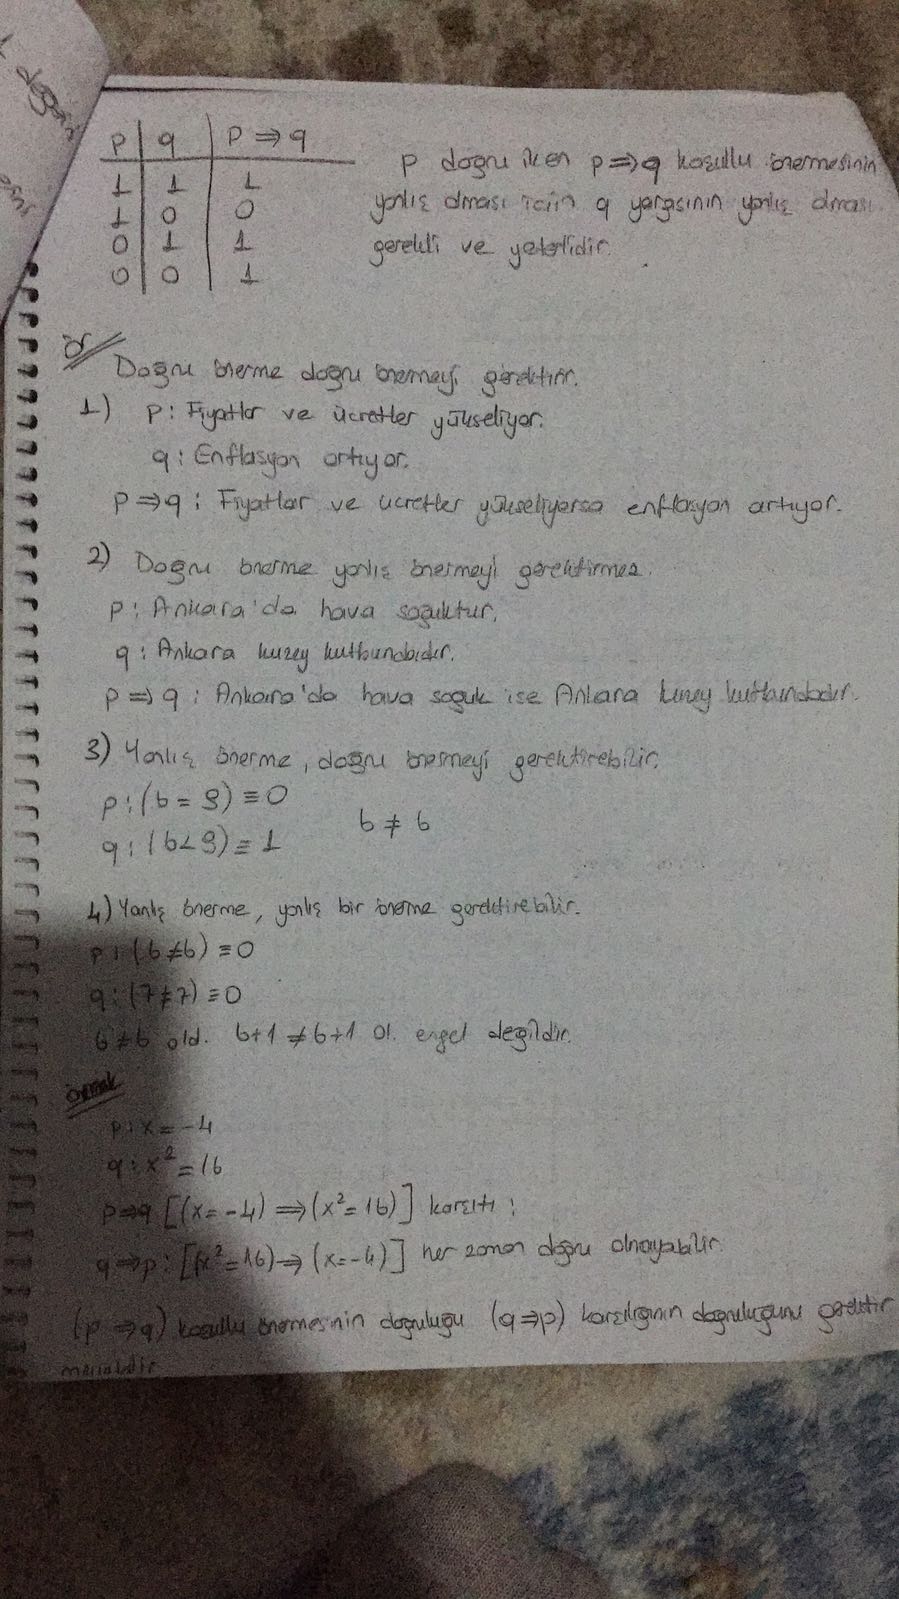 p | q | p ⇒ q
1 | 1 | 1
1 | 0 | 0
0 | 1 | 1
0 | 0 | 1
p doğru iken p⇒q koşullu önermesinin
yanlış olması için q yargısının yanlış olması
gerekli ve yeterlidir.
Ör
Doğru önerme doğru önermeyi gerektirir.
1) p: Fiyatlar ve ücretler yükseliyor.
q: Enflasyon artıyor.
p ⇒ q: Fiyatlar ve ücretler yükseliyorsa enflasyon artıyor.
2) Doğru önerme yanlış önermeyi gerektirmez.
p: Ankara'da hava soğuktur.
q: Ankara kuzey kutbundadır.
p ⇒ q: Ankara'da hava soğuk ise Ankara kuzey kutbundadır.
3) Yanlış önerme, doğru önermeyi gerektirebilir.
p: (6 = 9) ≡ 0
q: (6 < 9) ≡ 1
6 ≠ 6
4) Yanlış önerme, yanlış bir önerme gerektirebilir.
p: (6 ≠ 6) ≡ 0
q: (7 ≠ 7) ≡ 0
6 ≠ 6 old. 6+1 ≠ 6+1 ol. engel değildir.
Örnek
p: x = -4
q: x² = 16
p ⇒ q [(x = -4) ⇒ (x² = 16)] karşıtı:
q ⇒ p: [(x² = 16) → (x = -4)] her zaman doğru olmayabilir.
(p ⇒ q) koşullu önermesinin doğruluğu (q ⇒ p) karşılığının doğruluğunu gerektir